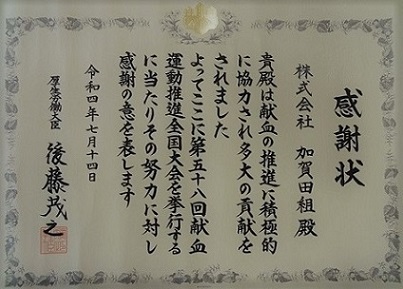 感謝状
株式会社 加賀田組殿
貴殿は献血の推進に積極的
に協力され多大の貢献を
されました
よってここに第五十八回献血
運動推進全国大会を挙行する
に当たりその努力に対し
感謝の意を表します
令和四年七月十四日
厚生労働大臣 後藤茂之